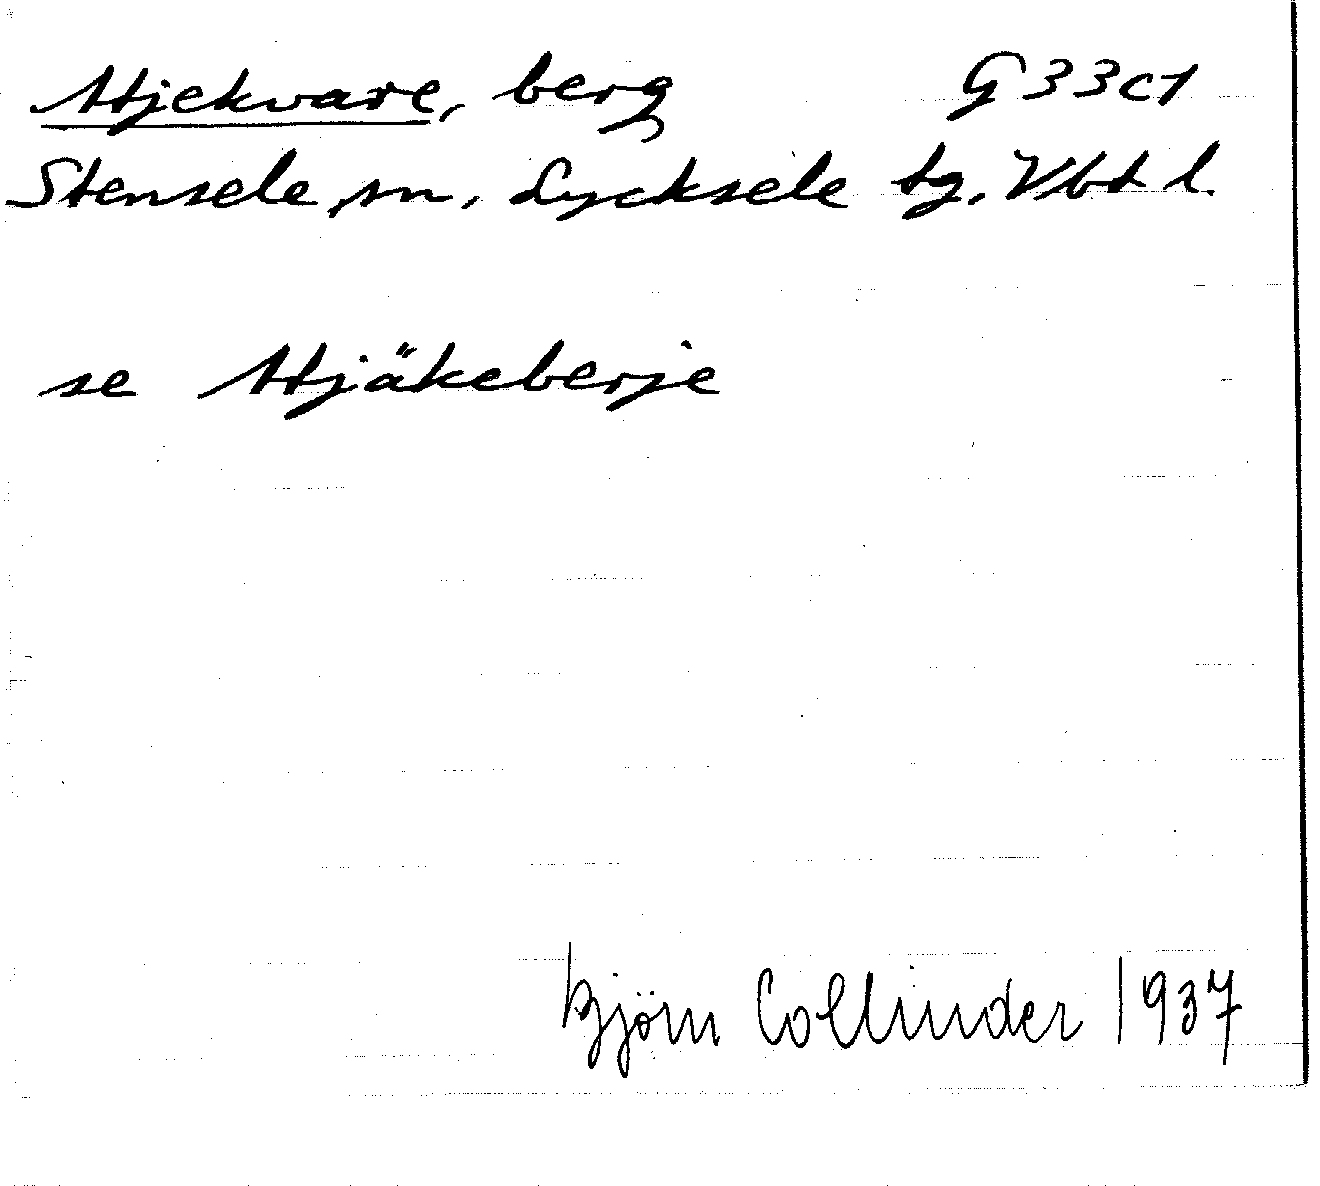 Atjekvare, berg G33c1
Stensele sn, Lycksele tg. Vbt l.
se Atjäkeberje
Björn Collinder 1937